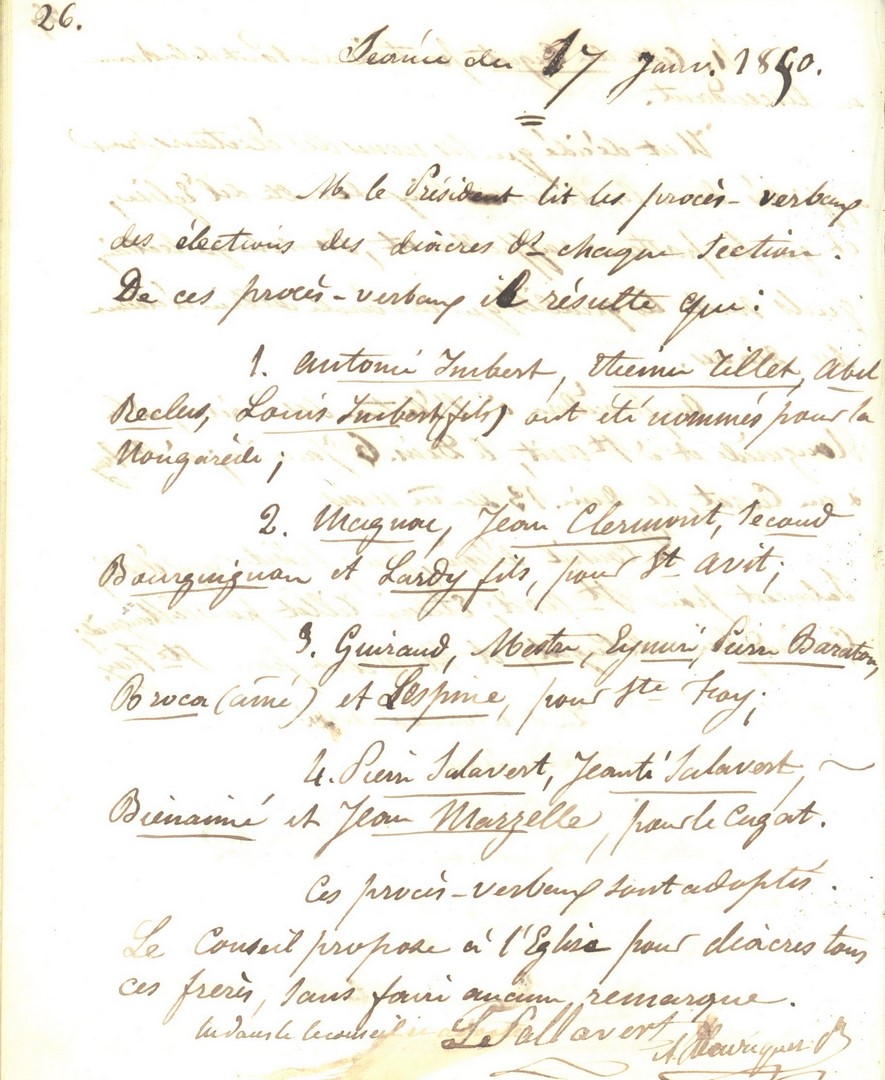 26.
Séance du 17 Janv. 1850.
M. le Président lit les procès-verbaux
des élections des diacres de chaque Section.
De ces procès-verbaux il résulte que:
1. Antoine Imbert, Etienne Tillet, Abel
Reclus, Louis Imbert (fils) ont été nommés pour la
Nougarède;
2. Magnac, Jean Clermont, Second
Bourguignon et Lardy fils, pour St Avit;
3. Guiraud, Mestre, Eymeri, Pierre Baraton,
Broca (ainé) et Lespine, pour Ste Foy;
4. Pierre Salavert, Jeanti Salavert,
Bienaimé et Jean Marzelle, pour le Cugat.
Ces procès-verbaux sont adoptés.
Le Conseil propose à l'Eglise pour diacres tous
ces frères, sans faire aucune remarque.
lu dans le conseil
Sallavert